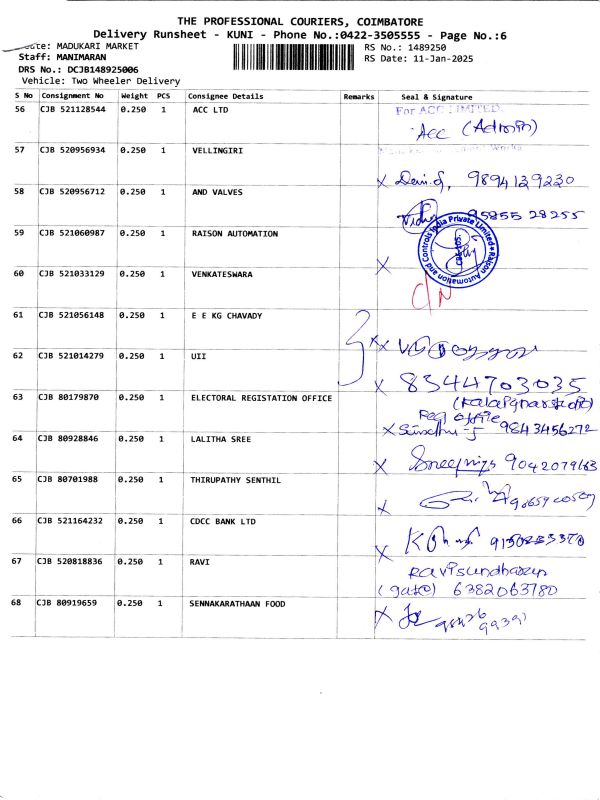 THE PROFESSIONAL COURIERS, COIMBATORE
Delivery Runsheet - KUNI - Phone No.:0422-3505555 - Page No.:6
MADUKARI MARKET
RS No.: 1489250
Staff: MANIMARAN
RS Date: 11-Jan-2025
DRS No.: DCJB148925006
Vehicle: Two Wheeler Delivery
S No Consignment No Weight PCS Consignee Details Remarks Seal & Signature
56 CJB 521128544 0.250 1 ACC LTD
For ACC LIMITED
Acc (Admin)
57 CJB 520956934 0.250 1 VELLINGIRI
Works
X 9894139230
58 CJB 520956712 0.250 1 AND VALVES
95855 28255
59 CJB 521060987 0.250 1 RAISON AUTOMATION
Raison Automation and Controls India Private Limited
CBE-105.
X
60 CJB 521033129 0.250 1 VENKATESWARA
C/N
61 CJB 521056148 0.250 1 E E KG CHAVADY
62 CJB 521014279 0.250 1 UII
X 8344703035
63 CJB 80179870 0.250 1 ELECTORAL REGISTATION OFFICE
Reg office
X 9843456272
64 CJB 80928846 0.250 1 LALITHA SREE
X 9042079163
65 CJB 80701988 0.250 1 THIRUPATHY SENTHIL
X
66 CJB 521164232 0.250 1 CDCC BANK LTD
X
67 CJB 520818836 0.250 1 RAVI
Ravisundharam
(gate) 6382063780
68 CJB 80919659 0.250 1 SENNAKARATHAAN FOOD
X